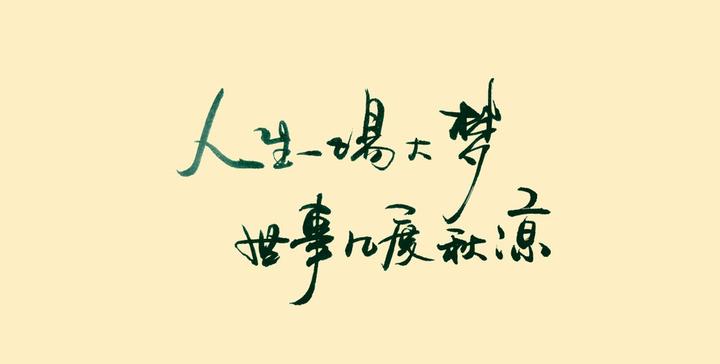 人生一場大梦
世事几度秋凉